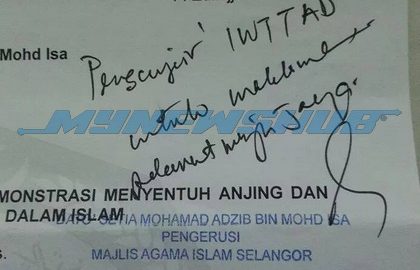 Mohd Isa
Pengarah IWTTAD
untuk makluman
Selamat maju Jaya.
MYNEWSHUB
MONSTRASI MENYENTUH ANJING DAN
DALAM ISLAM
DATO' SETIA MOHAMAD ADZIB BIN MOHD ISA
PENGERUSI
MAJLIS AGAMA ISLAM SELANGOR
s.